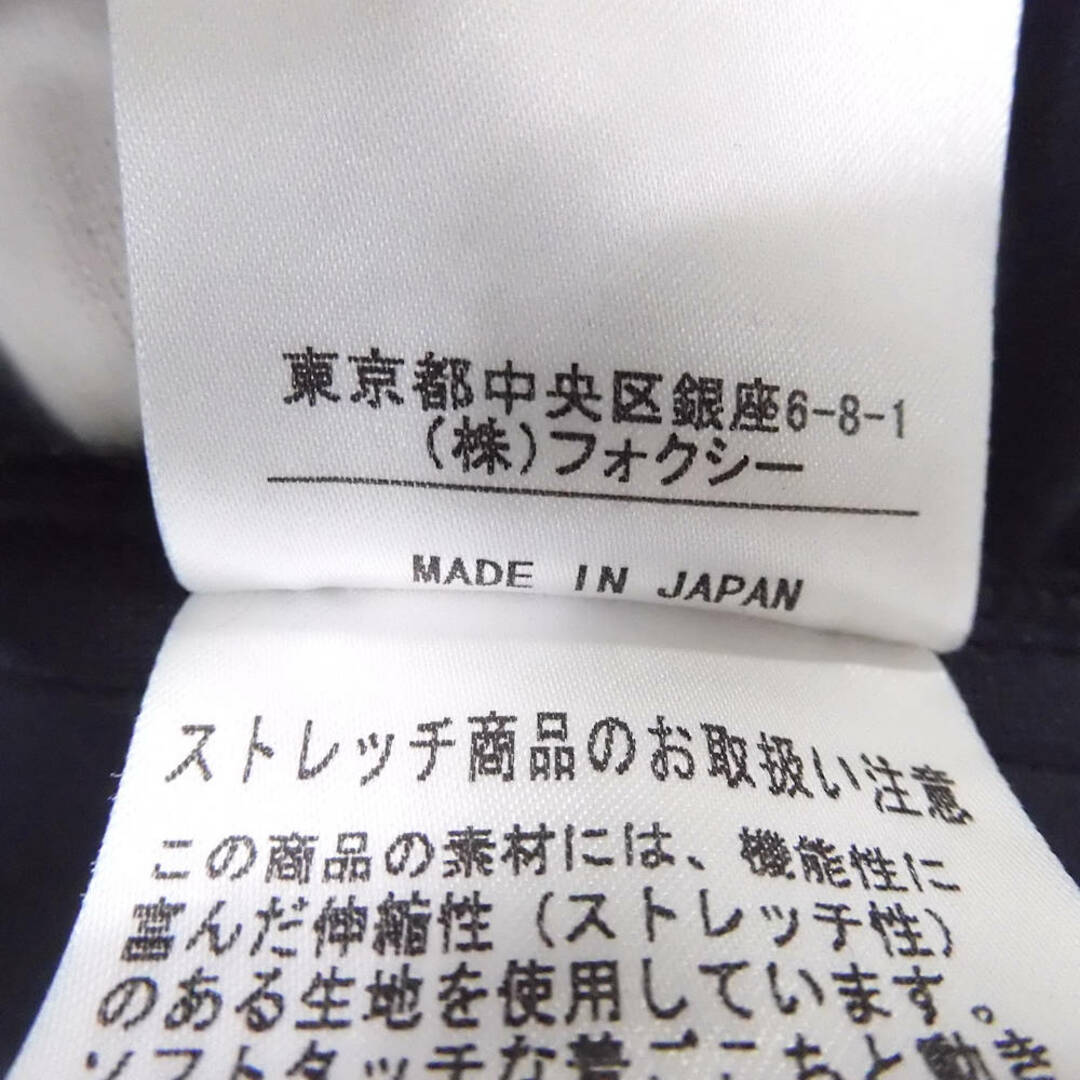 東京都中央区銀座6-8-1
(株)フォクシー
MADE IN JAPAN
ストレッチ商品のお取扱い注意
この商品の素材には、機能性に
富んだ伸縮性（ストレッチ性）
のある生地を使用しています。
ソフトタッチな着ごこちと動き